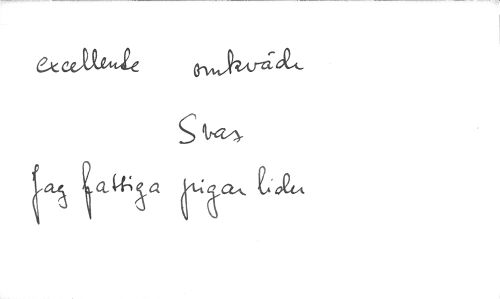 excellente omkväde
Svar
Jag fattiga pigan lider